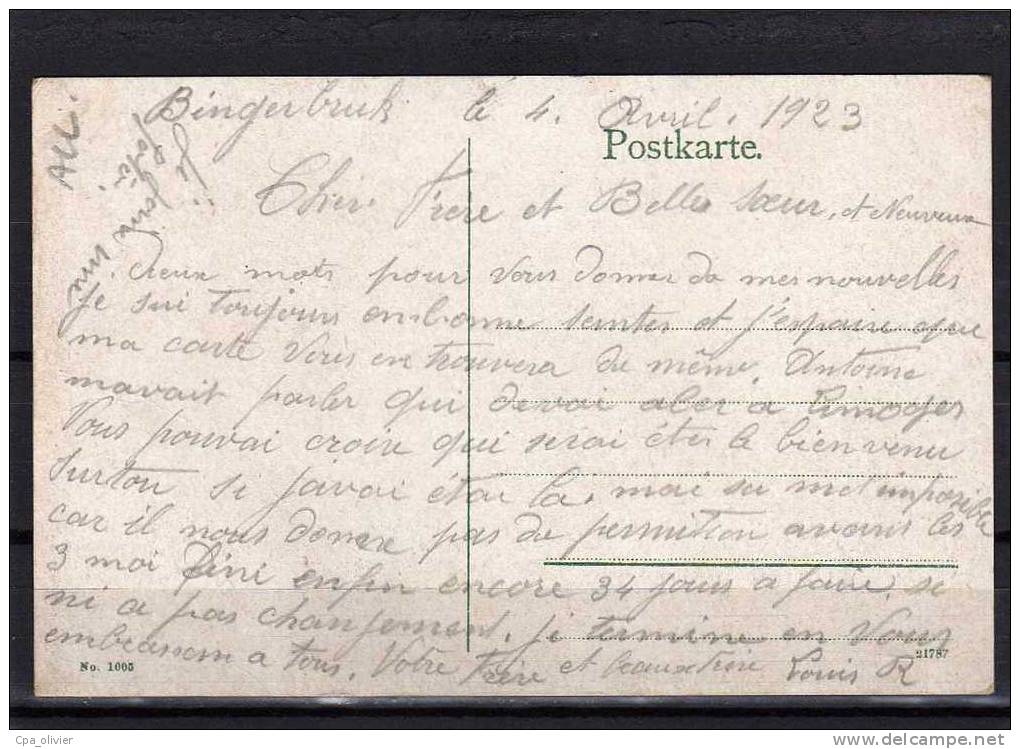 Bingerbruk le 4. Avril. 1923
All.
Postkarte.
Cher Frere et Belle sœur, et Neuveux
deux mots pour vous donner de mes nouvelles
je sui toujours en bonne sentes et j'espaire que
ma carte vous en trouvera de même. Antoine
mavait parler qui devai aler a Limoges
Vous pouvai croire qui serai éter le bienvenu
surtou si javai étai la. mai sa met imposible
car il nous donne pas de permition avant les
3 moi fini enfin encore 34 jours a faire. si
ni a pas chanjement. je termine en vous
embrassan a tous. Votre frère et beaux frère
Louis R
No. 1005
21787
Cpa_olivier